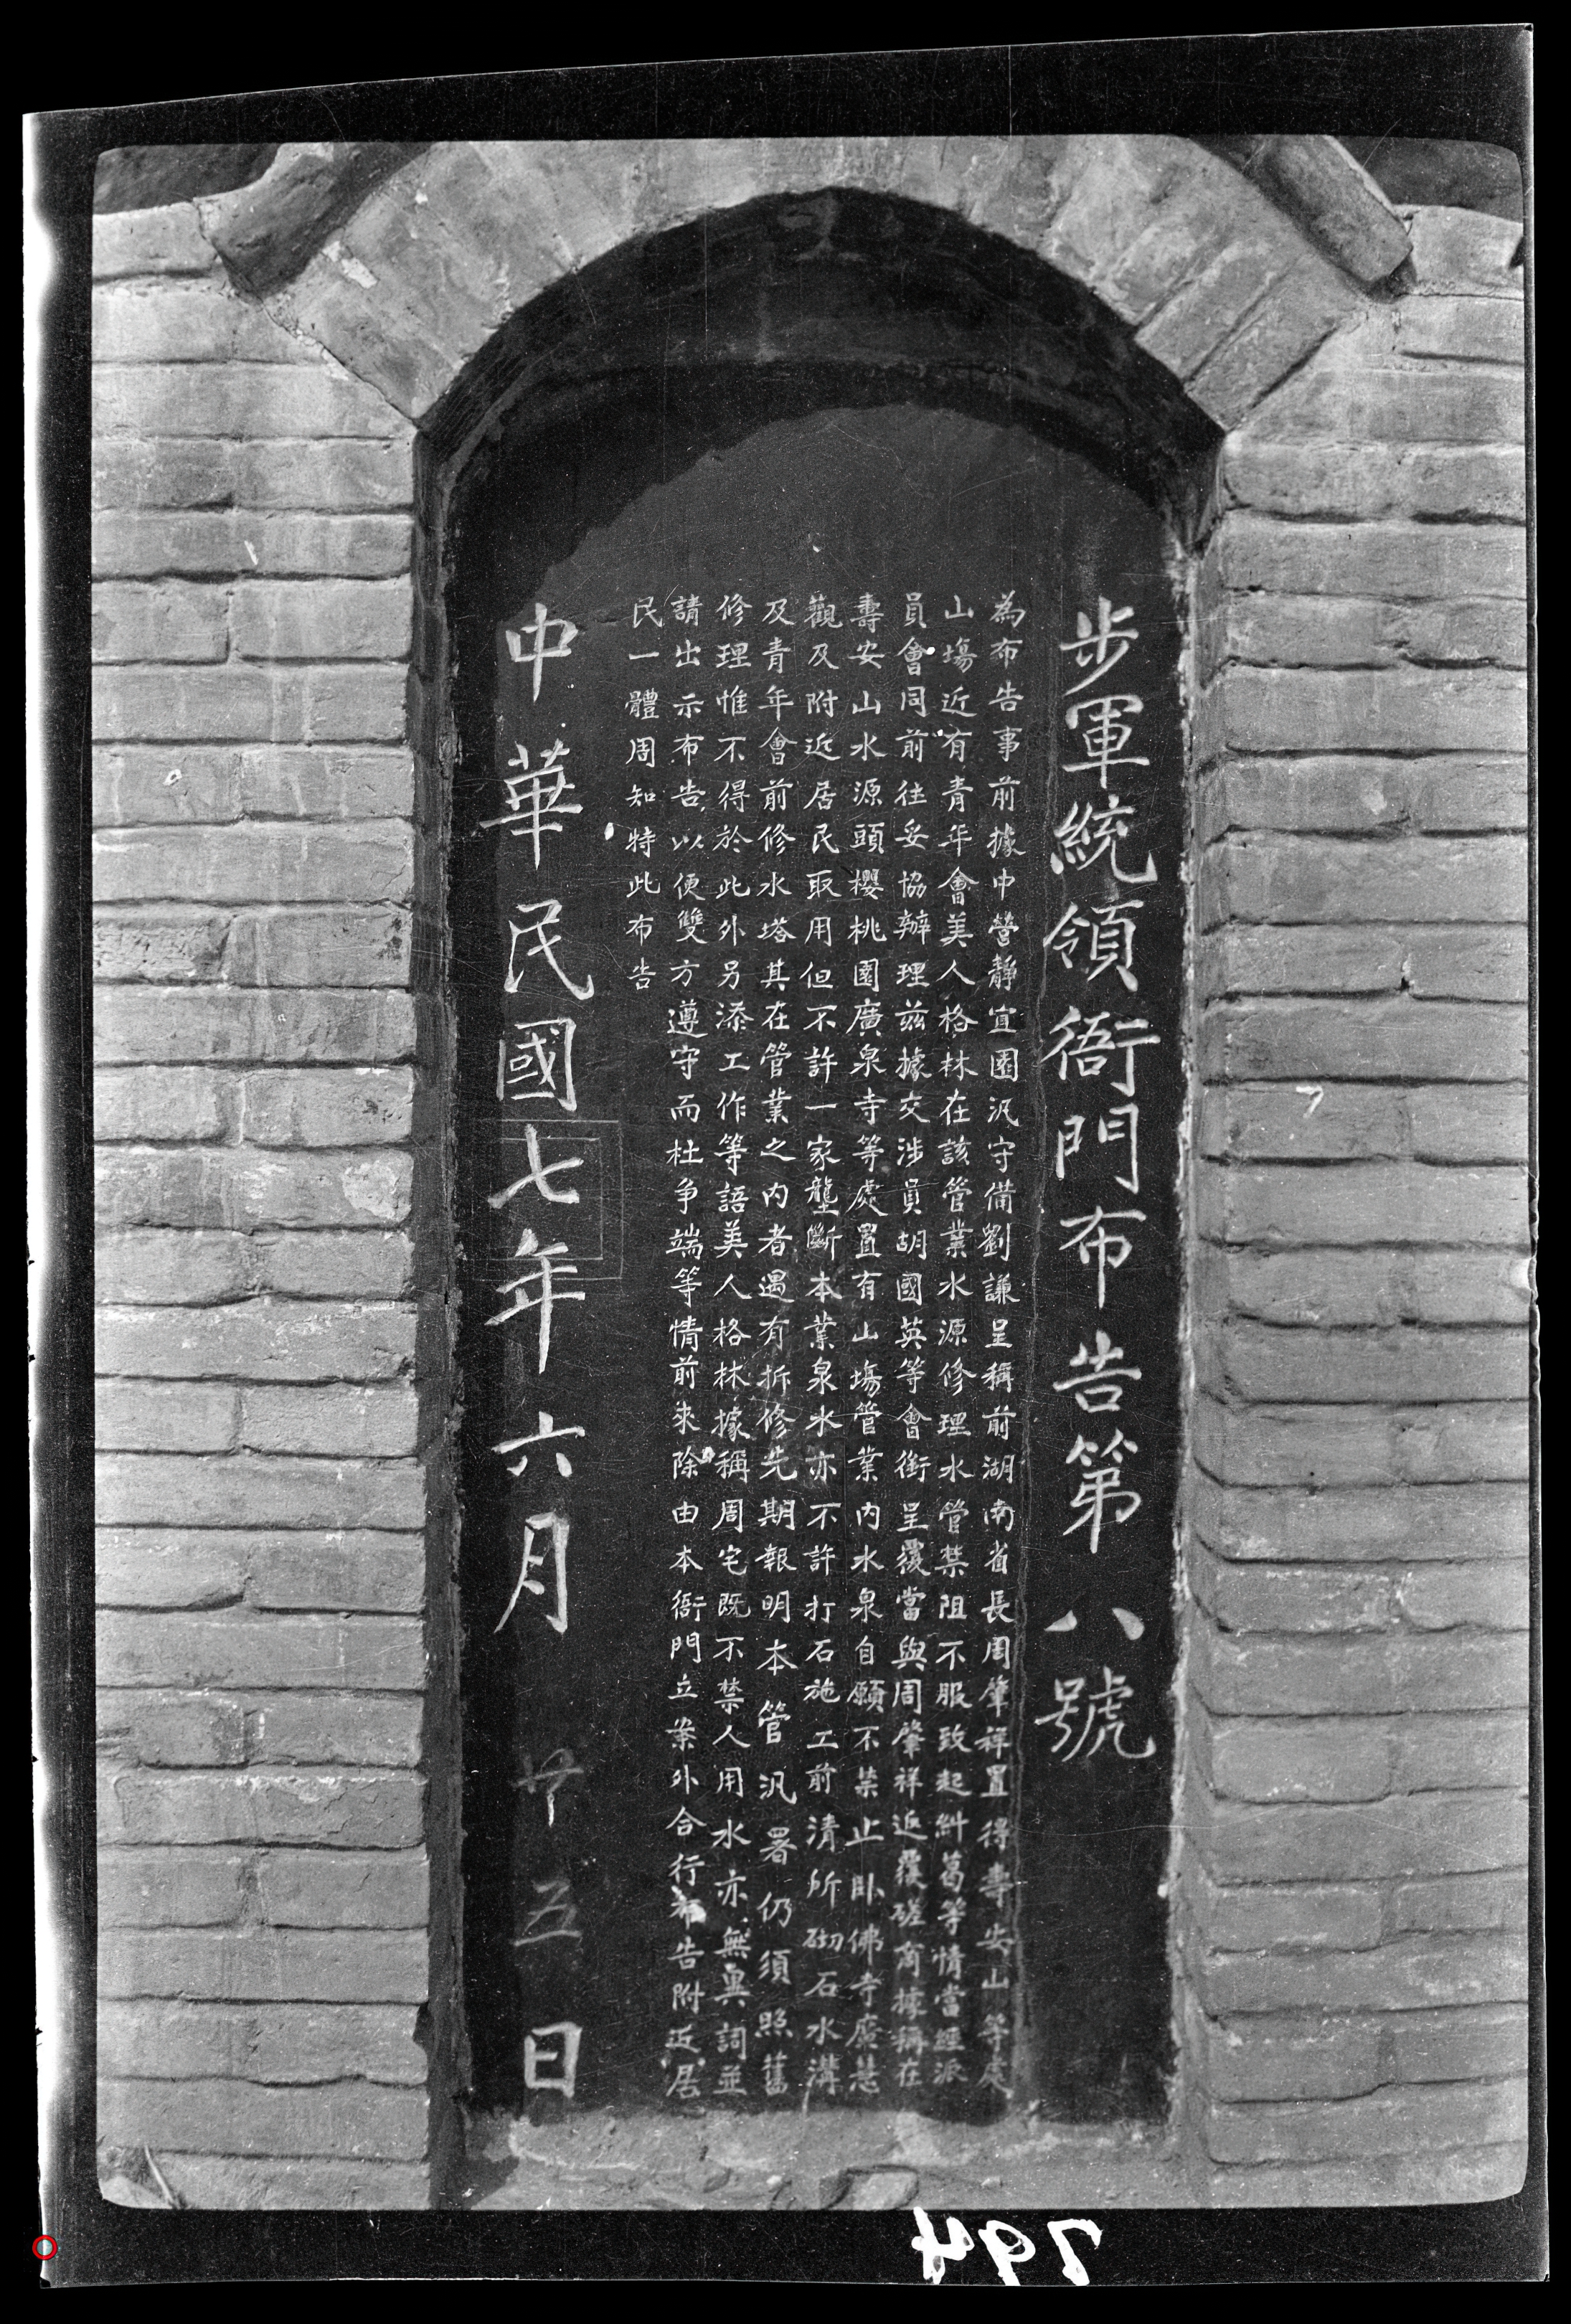 步軍統領衙門布告第八號
為布告事前據中營靜宜園汛守備劉謙呈稱前湖南省長周肇祥置得壽安山等處
山場近有青年會美人格林在該管業水源修理水管禁阻不服致起糾葛等情當經派
員會同前往妥協辦理茲據交涉員胡國英等會銜呈覆當與周肇祥返覆磋商據稱在
壽安山水源頭櫻桃園廣泉寺等處置有山塲管業內水泉自願不禁止臥佛寺廣慧
觀及附近居民取用但不許一家壟斷本業泉水亦不許打石施工前清所砌石水溝
及青年會前修水塔其在管業之內者遇有拆修先期報明本管汛署仍須照舊
修理惟不得於此外另添工作等語美人格林據稱周宅既不禁人用水亦無異詞並
請出示布告以便雙方遵守而杜爭端等情前來除由本衙門立案外合行布告附近居
民一體周知特此布告
中華民國七年六月廿五日
794